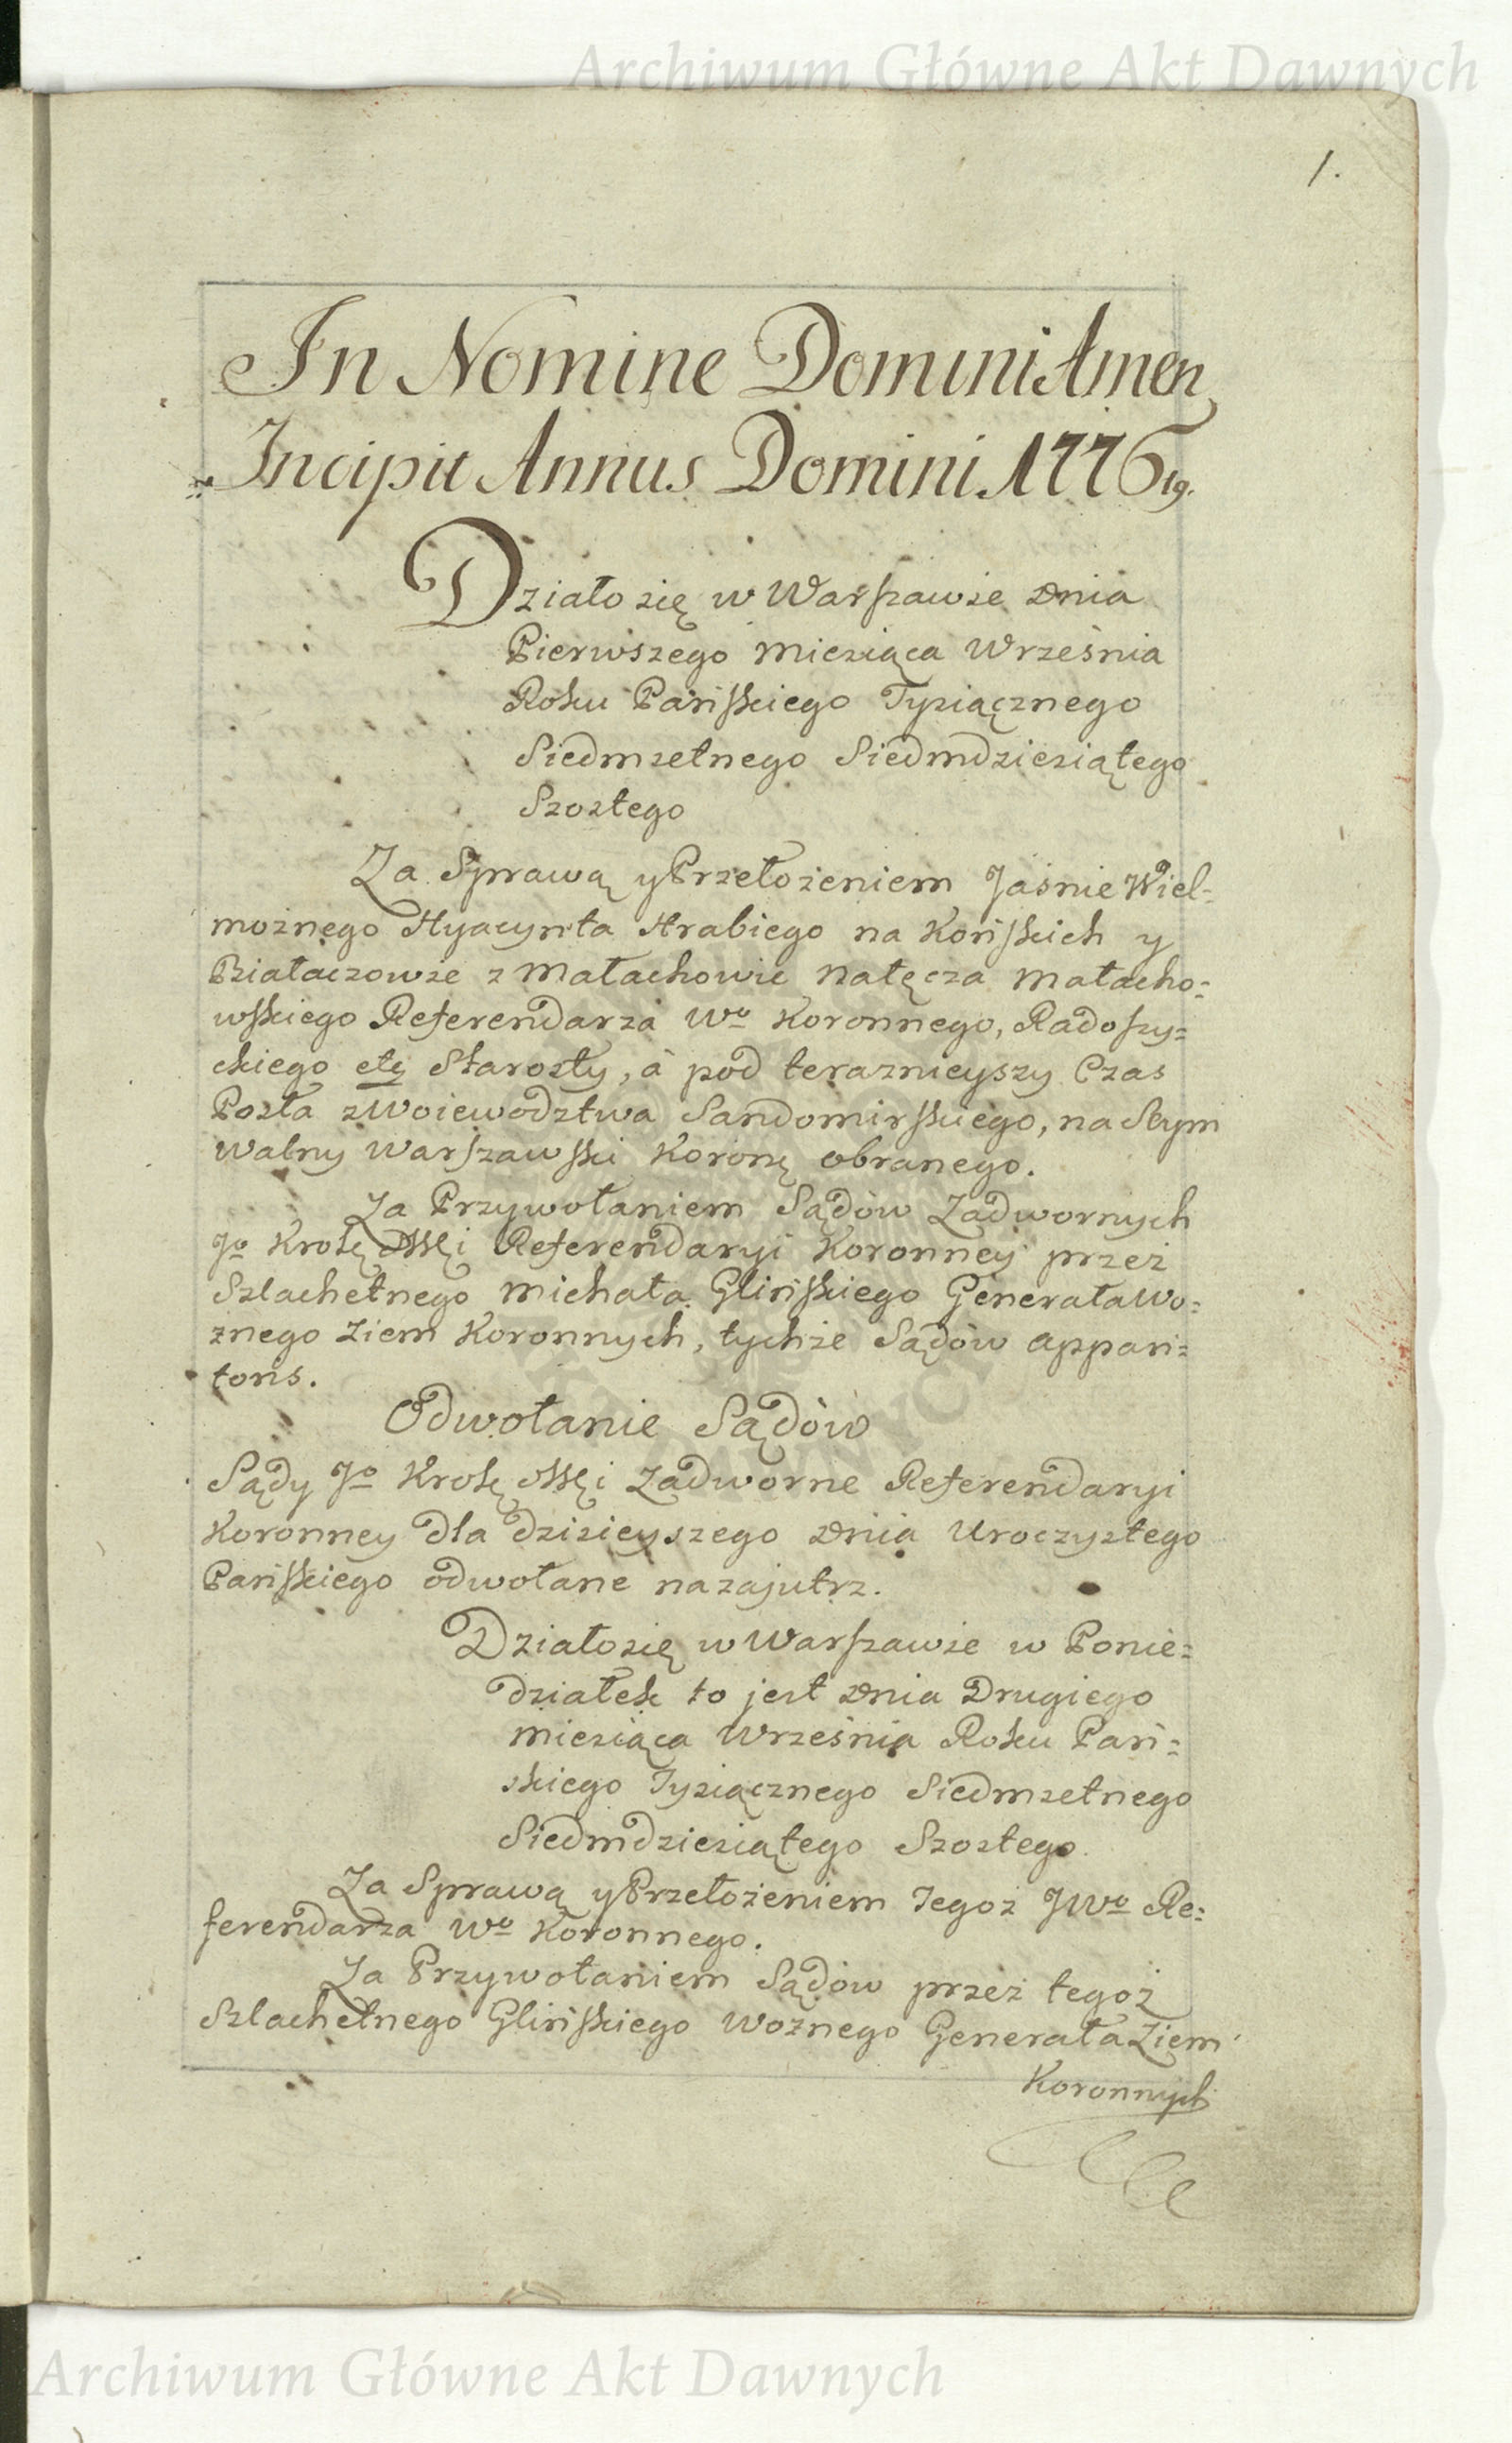 Archiwum Główne Akt Dawnych
1.
In Nomine Domini Amen
Incipit Annus Domini 1776
Działo się w Warszawie dnia
Pierwszego Miesiąca Września
Roku Pańskiego Tysiącznego
Siedmsetnego Siedmdziesiątego
Szostego
Za Sprawą y Przełożeniem Jaśnie Wiel-
możnego Hyacynta Hrabiego na Końskich y
Białaczowie z Małachowic Nałęcza Małacho=
wskiego Referendarza Wo Koronnego, Radoszy=
ckiego etc Starosty, à pod teraznieyszy Czas
Posła z Woiewodztwa Sandomirskiego, na Seym
Walny Warszawski Koronę obranego.
Za Przywołaniem Sądow Zadwornych
Jo Krolę Mści Referendaryi Koronney przez
Szlachetnego Michała Glińskiego Generała Wo=
znego Ziem Koronnych, tychże Sądów appari=
toris.
Odwołanie Sądów
Sądy Jo Krolę Mści Zadworne Referendaryi
Koronney dla dzisieyszego dnia Uroczystego
Pańskiego odwołane nazajutrz.
Działo się w Warszawie w Ponie=
działek to jest dnia Drugiego
Miesiąca Września Roku Pań=
skiego Tysiącznego Siedmsetnego
Siedmdziesiątego Szostego.
Za Sprawą y Przełożeniem Tegoż JWo Re=
ferendarza Wo Koronnego.
Za Przywołaniem Sądow przez tegoż
Szlachetnego Glińskiego Woznego Generała Ziem
Koronnych
Archiwum Główne Akt Dawnych